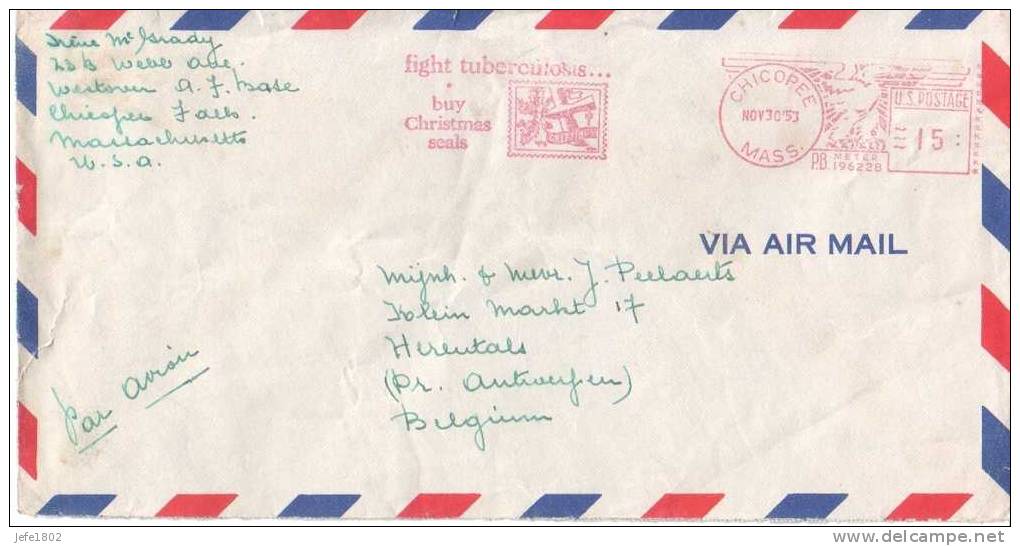 Irene McGrady
23B Webb Ave.
Westover A. F. Base
Chicopee Falls.
Massachusetts
U.S.A.
fight tuberculosis...
buy
Christmas
seals
CHICOPEE
NOV 30 '53
MASS.
U.S. POSTAGE
15
P.B. METER
196228
VIA AIR MAIL
Mijnh. & Mevr. J. Peelaerts
Klein Markt 17
Herentals
(Pr. Antwerpen)
Belgium
Par avion
jefe1802
delcampe.net